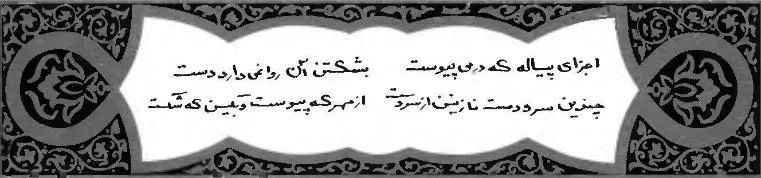 اجزای پیاله که در می پیوست بشکستن آن روا نمی دارد دست
چندین سر و دست نازنین از سر دست از مهر که پیوست و بکین که شکست